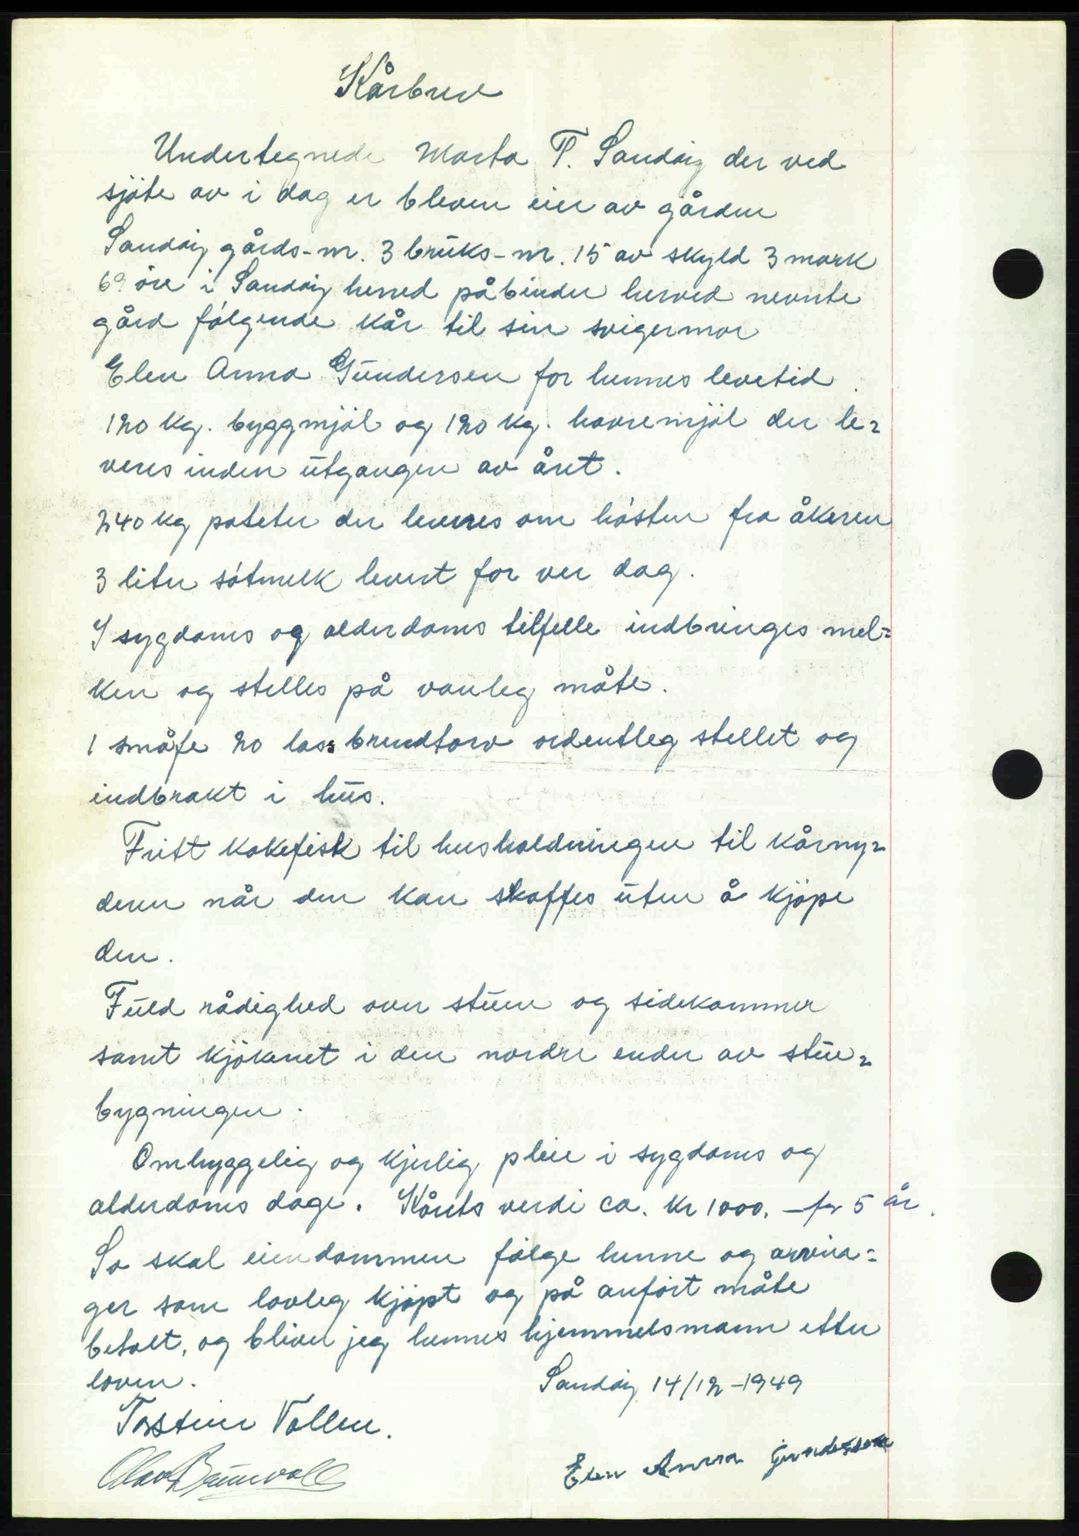 Kårbrev
Undertegnede Marta T. Sandøy der ved
sjöte av i dag er bleven eier av gården
Sandøy gårds-nr. 3 bruks-nr. 15 av skyld 3 mark
69 öre i Sandøy herred påbinder herved nevnte
gård fölgende kår til sin svigermor
Elen Anna Gundersen for hennes levetid
120 kg. byggmjöl og 120 kg. havremjöl der le=
veres inden utgangen av året.
240 kg poteter der leveres om hösten fra åkeren
3 liter sötmelk levert for ver dag.
I sygdoms og alderdoms tilfelle indbringes mel=
ken og stelles på vanleg måte.
1 småfe 20 lass brendtorv ordentleg stellet og
indbrakt i hus.
Fritt kokefisk til husholdningen til kårny=
deren når den kan skaffes uten å kjöpe
den.
Fuld rådighed over stuen og sidekammer
samt kjökenet i den nordre ender av stue=
bygningen.
Omhyggelig og kjerlig pleie i sygdoms og
alderdoms dage. Kårets verdi ca. kr 1000. – for 5 år.
So skal eiendommen fölge henne og arvin=
ger som lovleg kjöpt og på anfört måte
betalt, og bliver jeg hennes hjemmelsmann etter
loven.
Sandøy 14/12-1949
Torstein Vollen.
Olav Brunvoll
Elen Anna Gundersen